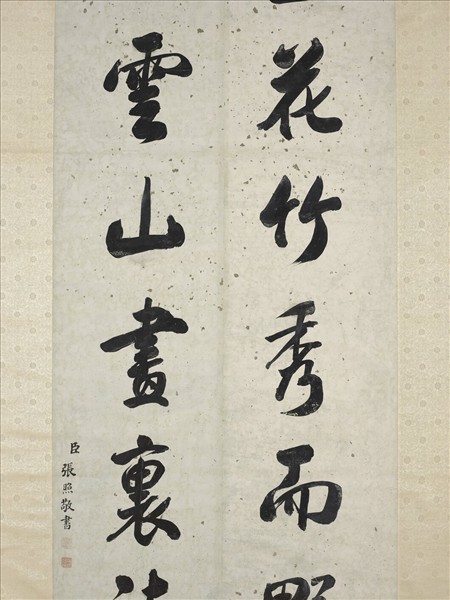 花竹秀而
雲山畫裏
臣張照敬書